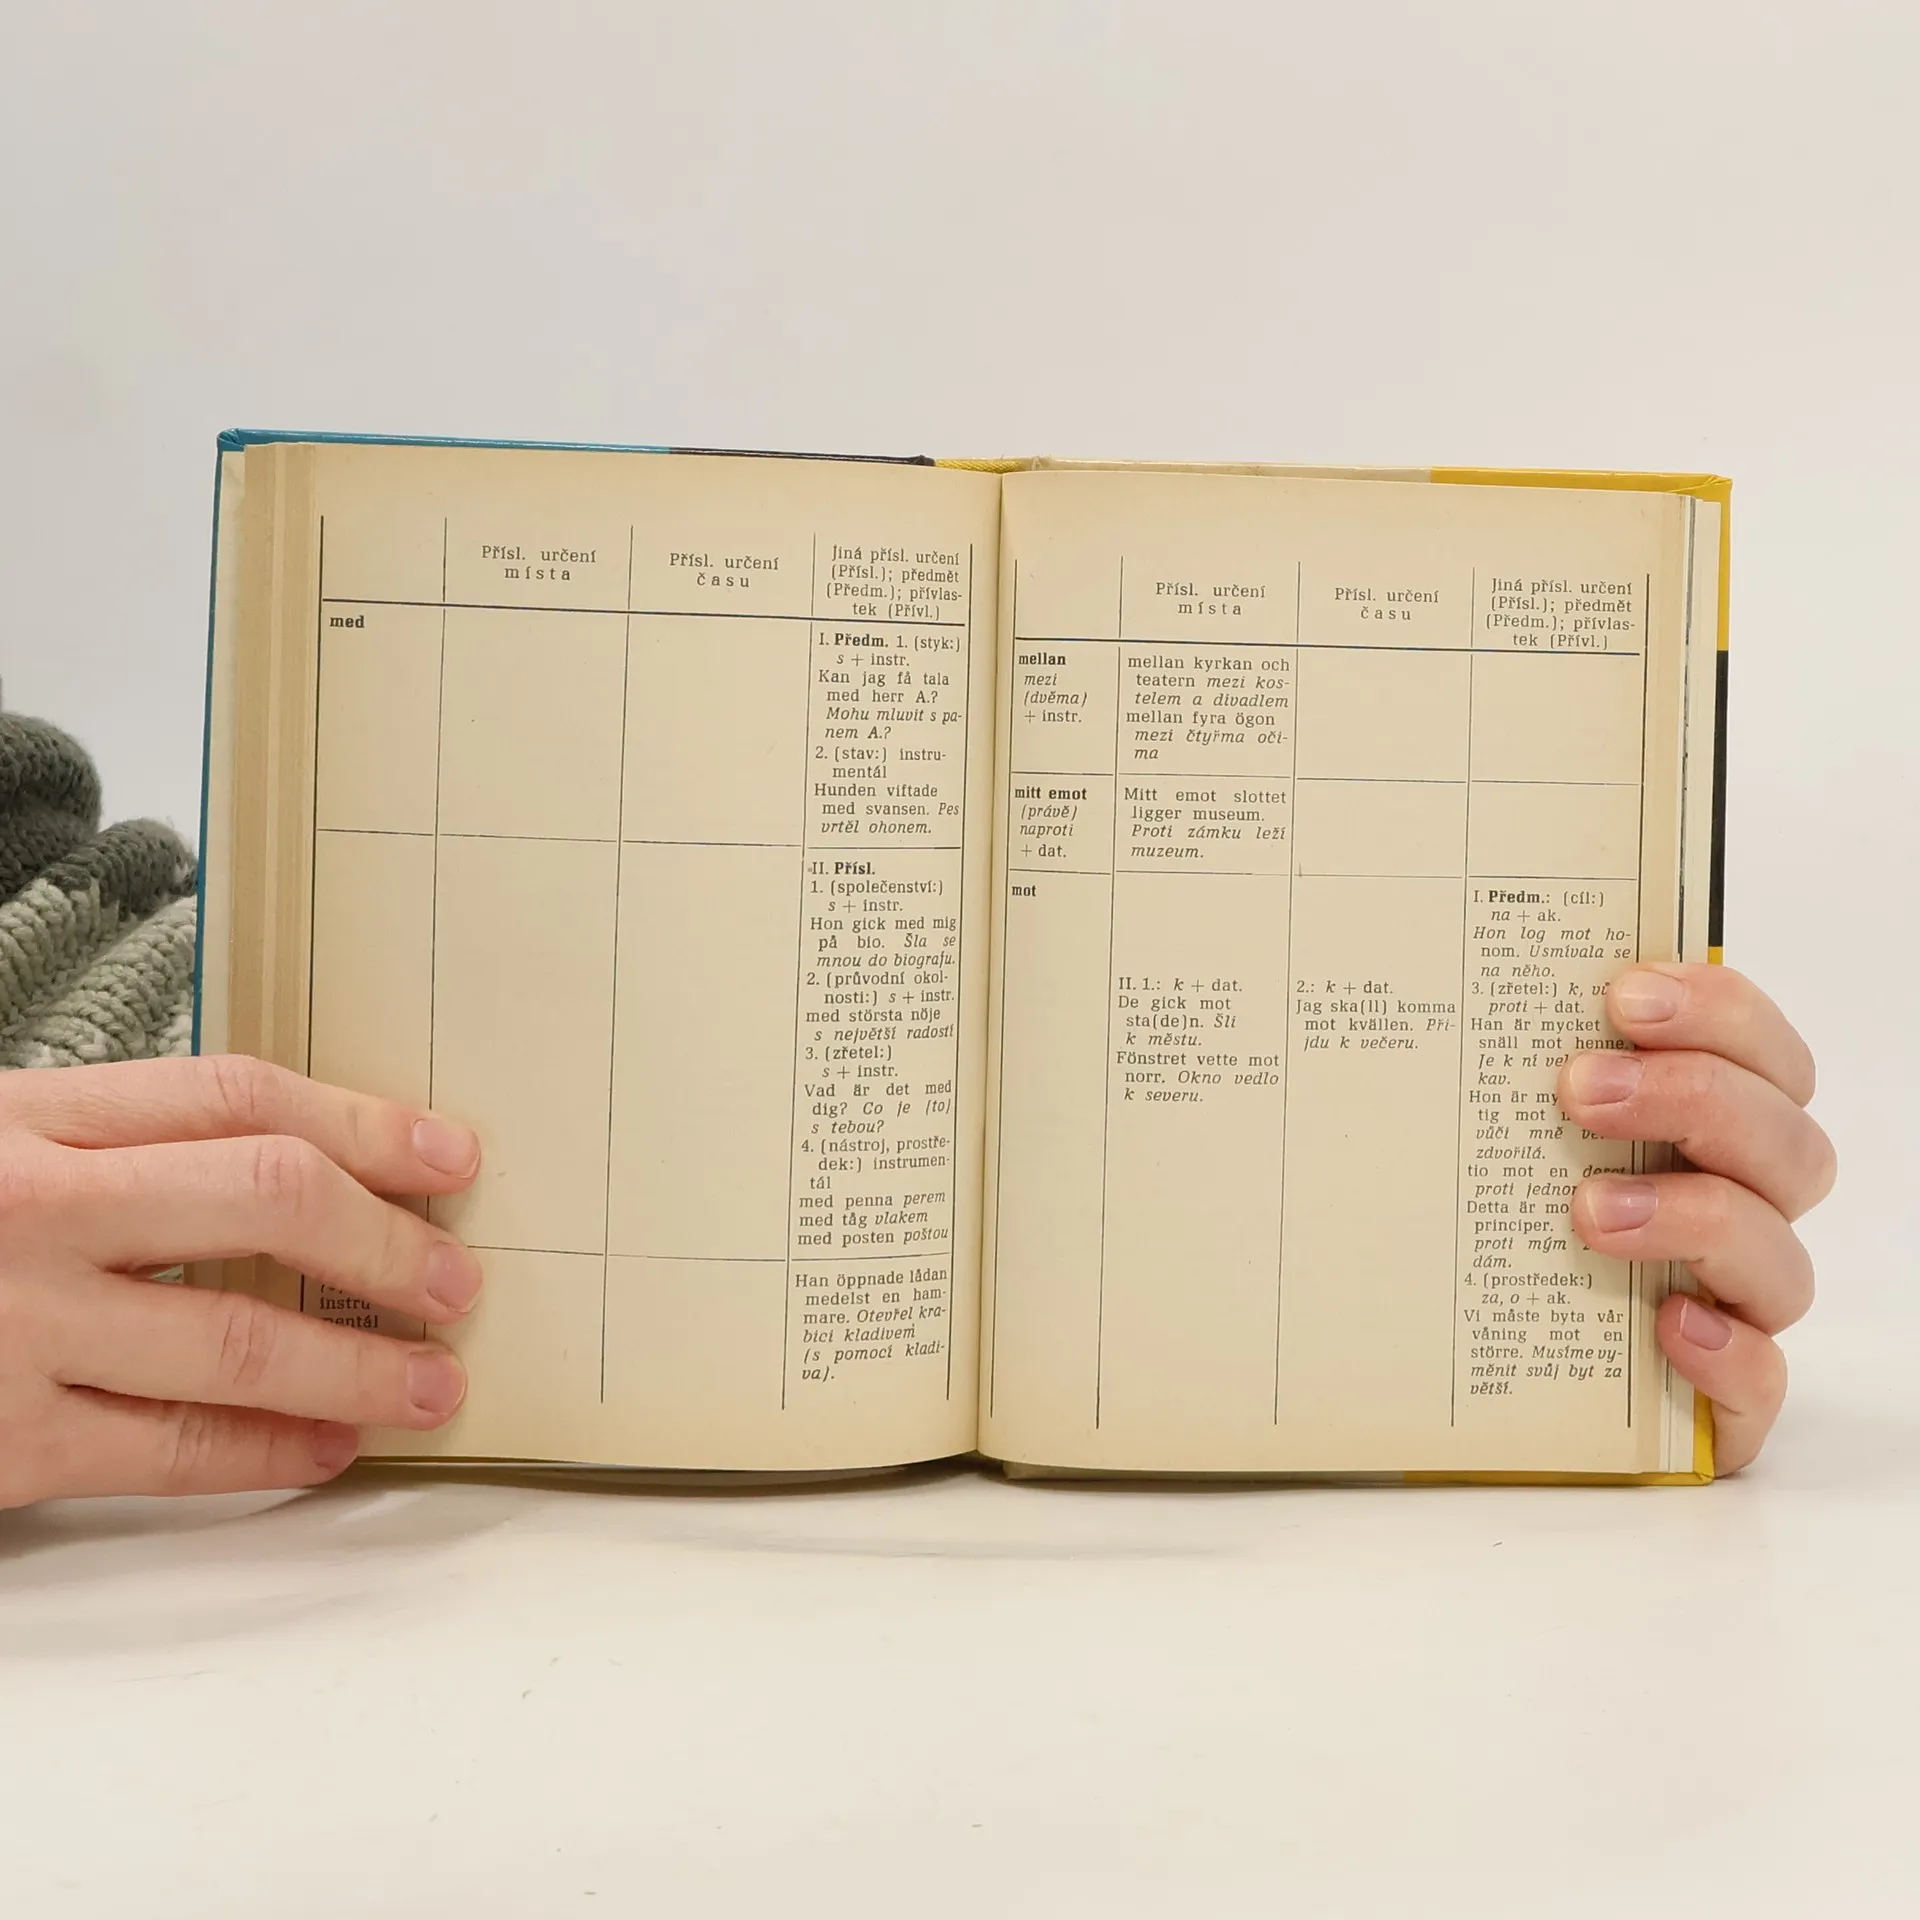 Přísl. určení
místa
Přísl. určení
času
Jiná přísl. určení
(Přísl.); předmět
(Předm.); přívlas-
tek (Přívl.)
med
I. Předm. 1. (styk:)
s + instr.
Kan jag få tala
med herr A.?
Mohu mluvit s pa-
nem A.?
2. (stav:) instru-
mentál
Hunden viftade
med svansen. Pes
vrtěl ohonem.
II. Přísl.
1. (společenství:)
s + instr.
Hon gick med mig
på bio. Šla se
mnou do biografu.
2. (průvodní okol-
nosti:) s + instr.
med största nöje
s největší radostí
3. (zřetel:)
s + instr.
Vad är det med
dig? Co je (to)
s tebou?
4. (nástroj, prostře-
dek:) instrumen-
tál
med penna perem
med tåg vlakem
med posten poštou
instru
mentál
Han öppnade lådan
medelst en ham-
mare. Otevřel kra-
bici kladivem
(s pomocí kladi-
va).
Přísl. určení
místa
Přísl. určení
času
Jiná přísl. určení
(Přísl.); předmět
(Předm.); přívlas-
tek (Přívl.)
mellan
mezi
(dvěma)
+ instr.
mellan kyrkan och
teatern mezi kos-
telem a divadlem
mellan fyra ögon
mezi čtyřma oči-
ma
mitt emot
(právě)
naproti
+ dat.
Mitt emot slottet
ligger museum.
Proti zámku leží
muzeum.
mot
II. 1.: k + dat.
De gick mot
sta(de)n. Šli
k městu.
Fönstret vette mot
norr. Okno vedlo
k severu.
2.: k + dat.
Jag ska(ll) komma
mot kvällen. Při-
jdu k večeru.
I. Předm.: (cíl:)
na + ak.
Hon log mot ho-
nom. Usmívala se
na něho.
3. (zřetel:) k,
proti + dat.
Han är mycket
snäll mot henne.
Je k ní
kav.
Hon är
tig mot
vůči mně
zdvořilá.
tio mot en deset
proti
Detta är
principer.
proti mým
dám.
4. (prostředek:)
za, o + ak.
Vi måste byta vår
våning mot en
större. Musíme vy-
měnit svůj byt za
větší.